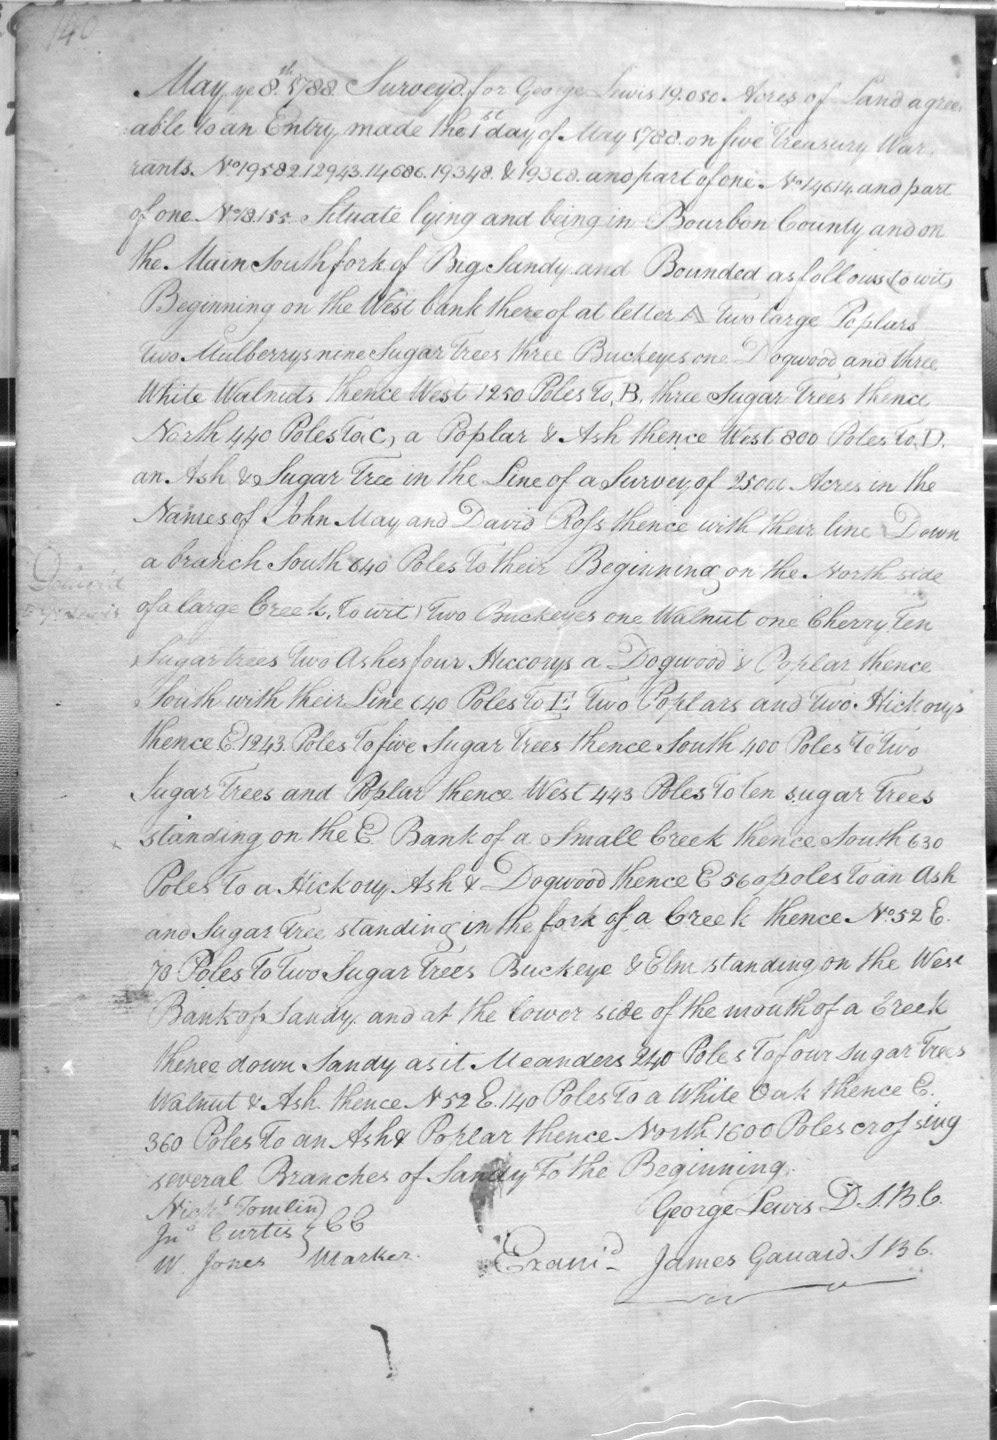 140
May ye 8th 1788 Survey'd for George Lewis 19.050 Acres of Land agree
able to an Entry made the 1st day of May 1788. on five Treasury War
rants. No 19582.12943.14686.19348. & 19368. and part of one. No 14614. and part
of one No 18.155 Situate lying and being in Bourbon County and on
the Main South fork of Big Sandy and Bounded as follows (to wit)
Beginning on the West bank thereof at letter A Two large Poplars
two Mulberrys nine Sugar trees three Buckeyes one Dogwood and three
White Walnuts thence West 1250 Poles to, B, three Sugar Trees thence
North 440 Poles to C, a Poplar & Ash thence West 800 Poles to, D.
an Ash & Sugar Tree in the Line of a Survey of 25000 Acres in the
Names of John May and David Ross thence with their line Down
a branch South 640 Poles to their Beginning on the North side
of a large Creek, to wit) two Buckeyes one Walnut one Cherry Ten
Sugar trees two Ashes four Hiccorys a Dogwood & Poplar thence
South with their Line 640 Poles to E Two Poplars and two Hickorys
thence E. 1243 Poles to five Sugar Trees thence South 400 Poles to Two
Sugar Trees and Poplar thence West 443 Poles to ten sugar Trees
standing on the E. Bank of a Small Creek thence South 630
Poles to a Hickory Ash & Dogwood thence E 560 poles to an Ash
and Sugar Tree standing in the fork of a Creek thence No 52 E.
70 Poles to two Sugar Trees Buckeye & Elm standing on the West
Bank of Sandy. and at the lower side of the mouth of a Creek
thence down Sandy as it Meanders 240 Poles to four Sugar Trees
Walnut & Ash thence N 52 E. 140 Poles to a White Oak thence E.
360 Poles to an Ash & Poplar thence North 1600 Poles crossing
several Branches of Sandy to the Beginning.
Nichs Tomlin
Jno Curtis } CC
W. Jones Marker.
George Lewis D.S.B.C
Exami'd James Garrard S B C.